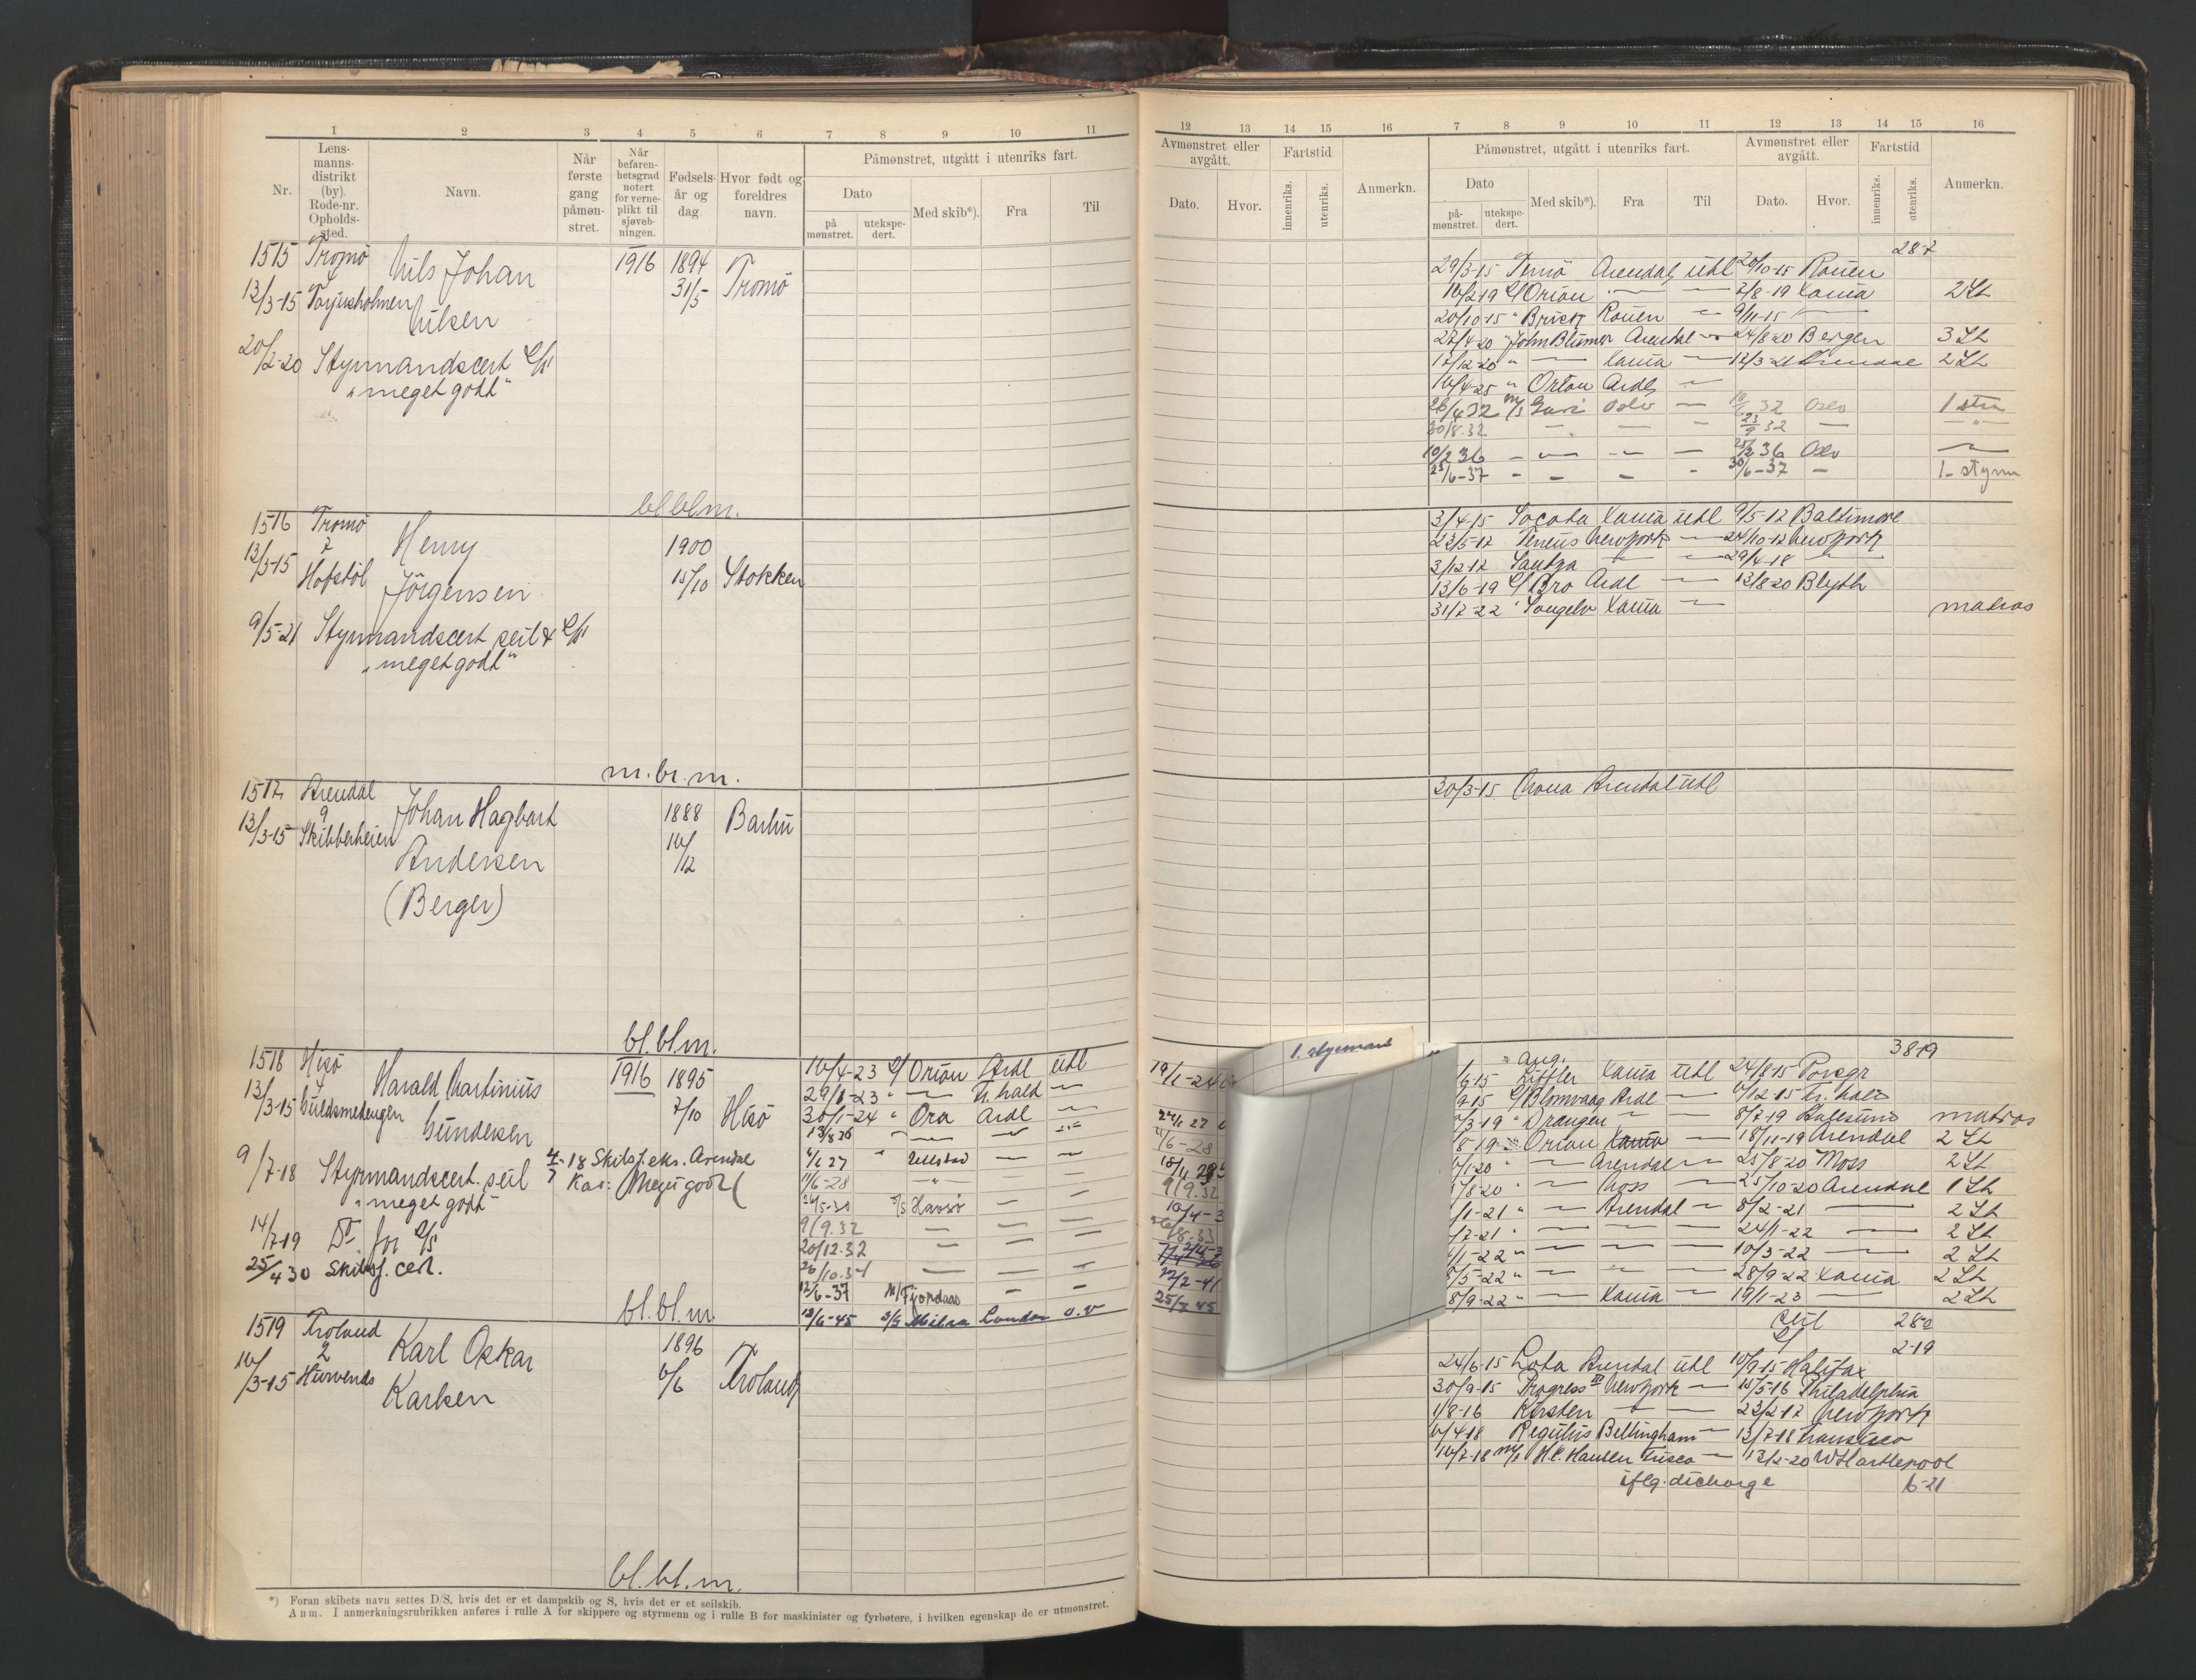 1 2 3 4 5 6 7 8 9 10 11
Nr. Lensmannsdistrikt (by). Rode-nr. Opholdssted. Navn. Når første gang påmønstret. Når befarenhetsgrad notert for verneplikt til sjøvebningen. Fødselsår og dag. Hvor født og foreldres navn. Påmønstret, utgått i utenriks fart.
Dato
på mønstret. utekspedert. Med skib*). Fra Til
1515 Tromö Nils Johan 1916 1894 Tromö
4
13/3-15 Torjusholmen Nilsen 31/5
20/2-20 Styrmandscert
"meget godt"
bl.bl.m.
1516 Tromö Henry 1900
7
13/3-15 Hofstöl Jörgensen 15/10 Stokken
9/5-21 Styrmandscert seil &
"meget godt"
m.bl.m.
1517 Arendal Johan Hagbart 1888 Barbu
9
13/3-15 Skibberheien Andersen 16/12
(Berger)
bl.bl.m.
1518 Hisö Harald Martinius 1916 1895
4
13/3-15 Guldsmedengen Gundersen 7/10 Hisö
9/7-18 Styrmandscert. seil 4/7-18 Skibsf.eks. Arendal
"meget godt" Kar: Meget godt
14/7-19 Do for
25/4 30 Skibsf. cert.
16/4-23 Orion Ardl utl
29/8-23 " — Fr.hald —
30/1-24 " Ora Ardl —
13/8 26 " — — —
6/6 27 " Ullstad — —
11/6-28 — " —
24/5-30 Havsø — —
9/9.32 — — —
20/12.32 — — —
26/10.34 — — —
12/6-37 M/ Fjordaas — —
13/6-45 Milra London u.v
bl.bl.m
1519 Froland Karl Oskar 1896
2
16/3-15 Hurvends Karlsen 6/6 Froland
bl.bl.m.
*) Foran skibets navn settes D/S, hvis det er et dampskib og S, hvis det er et seilskib.
Anm. I anmerkningsrubrikken anføres i rulle A for skippere og styrmenn og i rulle B for maskinister og fyrbøtere, i hvilken egenskap de er utmønstret.
12 13 14 15 16 7 8 9 10 11 12 13 14 15 16
Avmønstret eller avgått. Fartstid Anmerkn. Påmønstret, utgått i utenriks fart. Avmønstret eller avgått. Fartstid Anmerkn.
Dato. Hvor. innenriks. utenriks. Dato Med skib*). Fra Til Dato. Hvor. innenriks. utenriks.
påmønstret. utekspedert.
28-7
29/3-15 Temö Arendal utl 20/10-15 Rouen
16/2-19 Orion — — 7/8-19 Xania 2 St
20/10-15 " Brisk Rouen — 9/11-15 —
27/4-20 " John Blumer Arendal — 24/8 20 Bergen 3 St
17/12-20 " — Xania — 12/3-21 Arendal 2 St
16/4-25 " Orion Ardl —
26/4 32 m/s Guri Oslo — 32 Oslo 1 stm
30/8.32 — — — 23/9 32 — — " —
10/2 36 — — — — 25/2 36 Oslo —
23/6-37 — — — — 30/6-37 — 1-styrm
3/4-15 Socota Xania utl 9/5-17 Baltimore
23/5-17 Teneus Newyork — 24/10-17 Newyork
3/12-17 — — 29/4-18 —
13/6-19 Bro Ardl — 13/8 20 Blyth
31/7-22 " Songelv Xania — matros
20/3-15 Mona Arendal utl
1. styrmand
19/1-24
24/1 27
11/6-28
18/11 29
9/9.32
10/4-3
26/8.33
22/2-41
25/7 45
3 8-19
aug.
6-15 Löffler Xania utl 24/8-15 Porsgr
9-15 Blomvaag Ardl — 6/12-15 Fr. hald
/3-19 " Draugen " — 8/7-19 matros
/8-19 Orion Xania — 18/11-19 Arendal 2 St
/1-20 " — Arendal — 25/8-20 Moss 2 St
/8-20 " — Moss — 25/10-20 Arendal 1 St
/1-21 " — Arendal — 8/2-21 — 2 St
/2-21 " — — — 24/1-22 — 2 St
/1-22 " — — — 10/3-22 — 2 St
/5-22 " — — — 28/9-22 Xania 2 St
8/9-22 " — Xania — 19/1-23 — 2 St
seil 28-0
2-19
24/6-15 Lota Arendal utl 10/9-15 Halifax
30/9-15 Progress Newyork — 15/5-16 Philadelphia
1/8-16 Kirsten — — 23/2-17 Newyork
6/4-18 Regulus Bellingham — 13/7-18 Fransisco
16/7-18 m/s H.C. Hansen Frisco — 13/2-20 W Hartlepool
iflg. dicharge 6-21